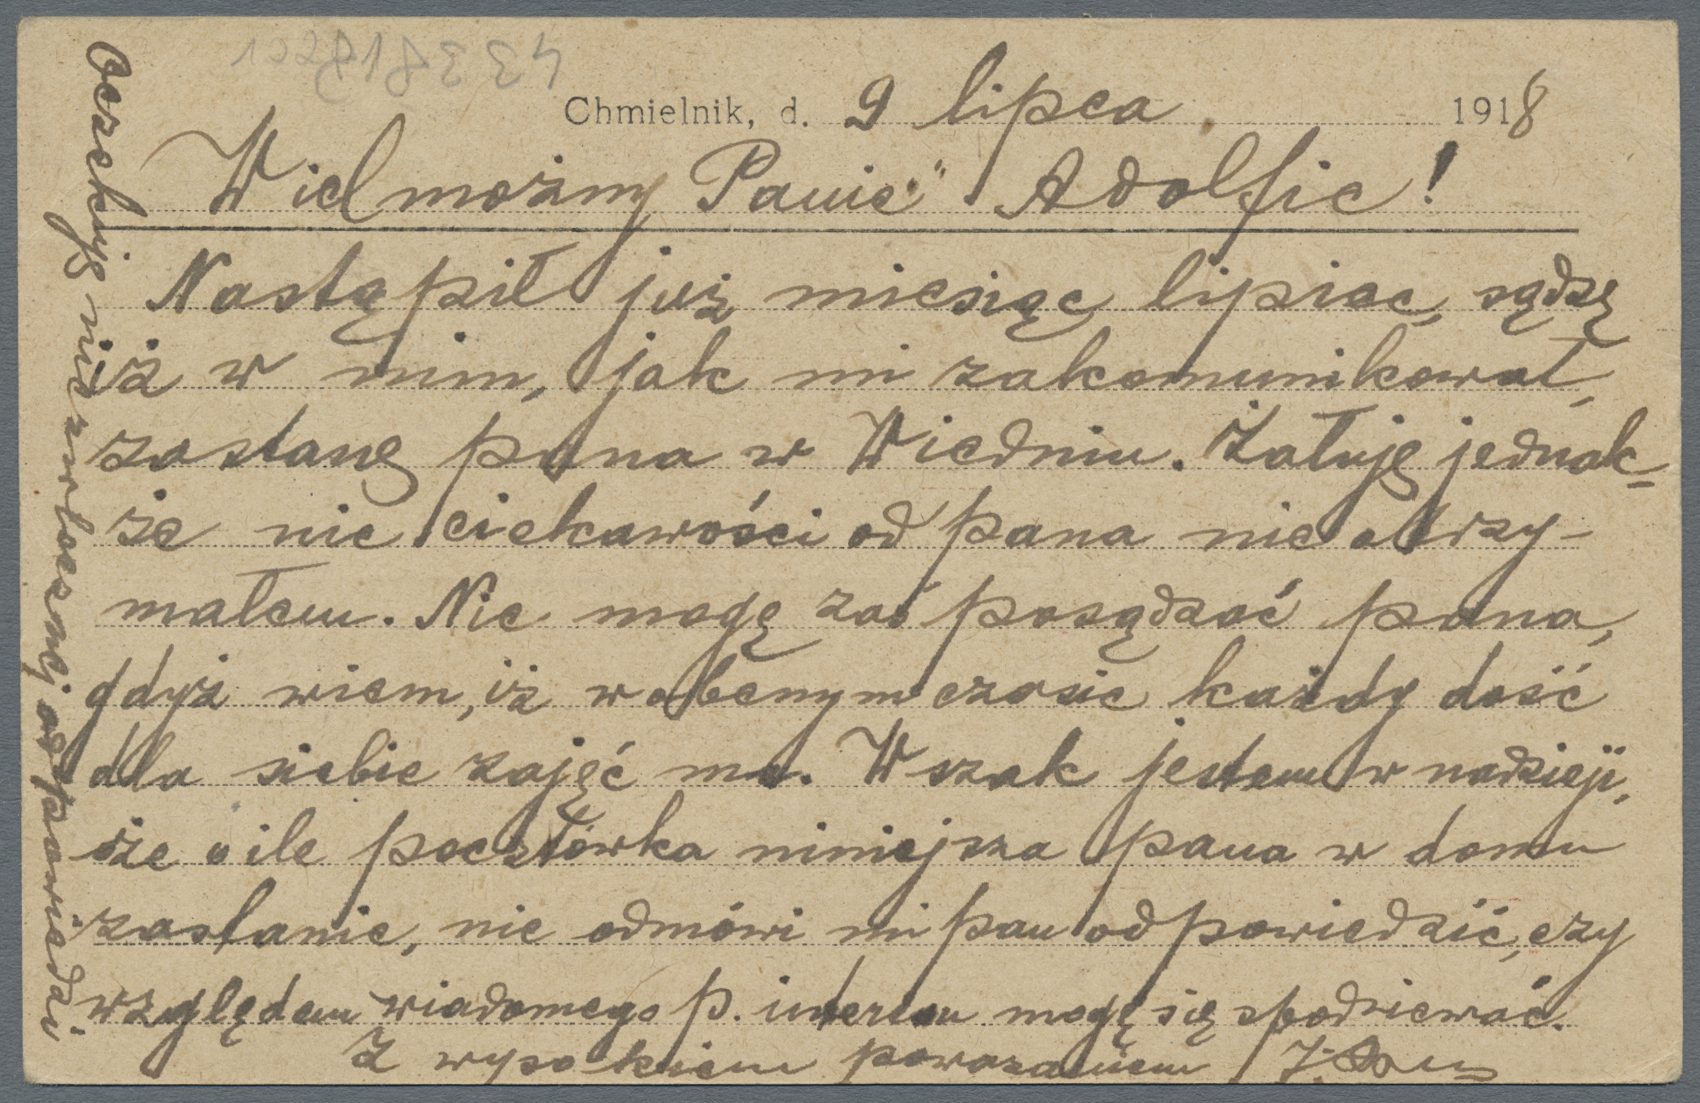 Chmielnik, d. 9 lipca 1918
Wielmożny Panie Adolfie!
Nastąpił już miesiąc lipiec, sądzę
iż w nim, jak mi zakomunikował,
zostanę pana w Wiedniu. Żałuję jednak=
że nic ciekawości od pana nie otrzy-
małem. Nie mogę zaś posądzać pana,
gdyż wiem, iż w obenym czasie każdy dość
dla siebie zajęć ma. Wszak jestem w nadzieji,
że o ile pocztówka niniejsza pana w domu
zastanie, nie odmówi mi pan odpowiedzić, czy
względem wiadomego p. interesu mogę się spodziewać.
Z wysokiem poważaniem J.
Oczekuję niezwłocznej odpowiedzi